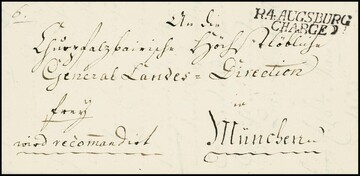 6.
An die
R.4. AUGSBURG
CHARGÉ
Churpfalzbairische Hochlöbliche
General Landes=Direction
frey
in
wird recomandirt
München.